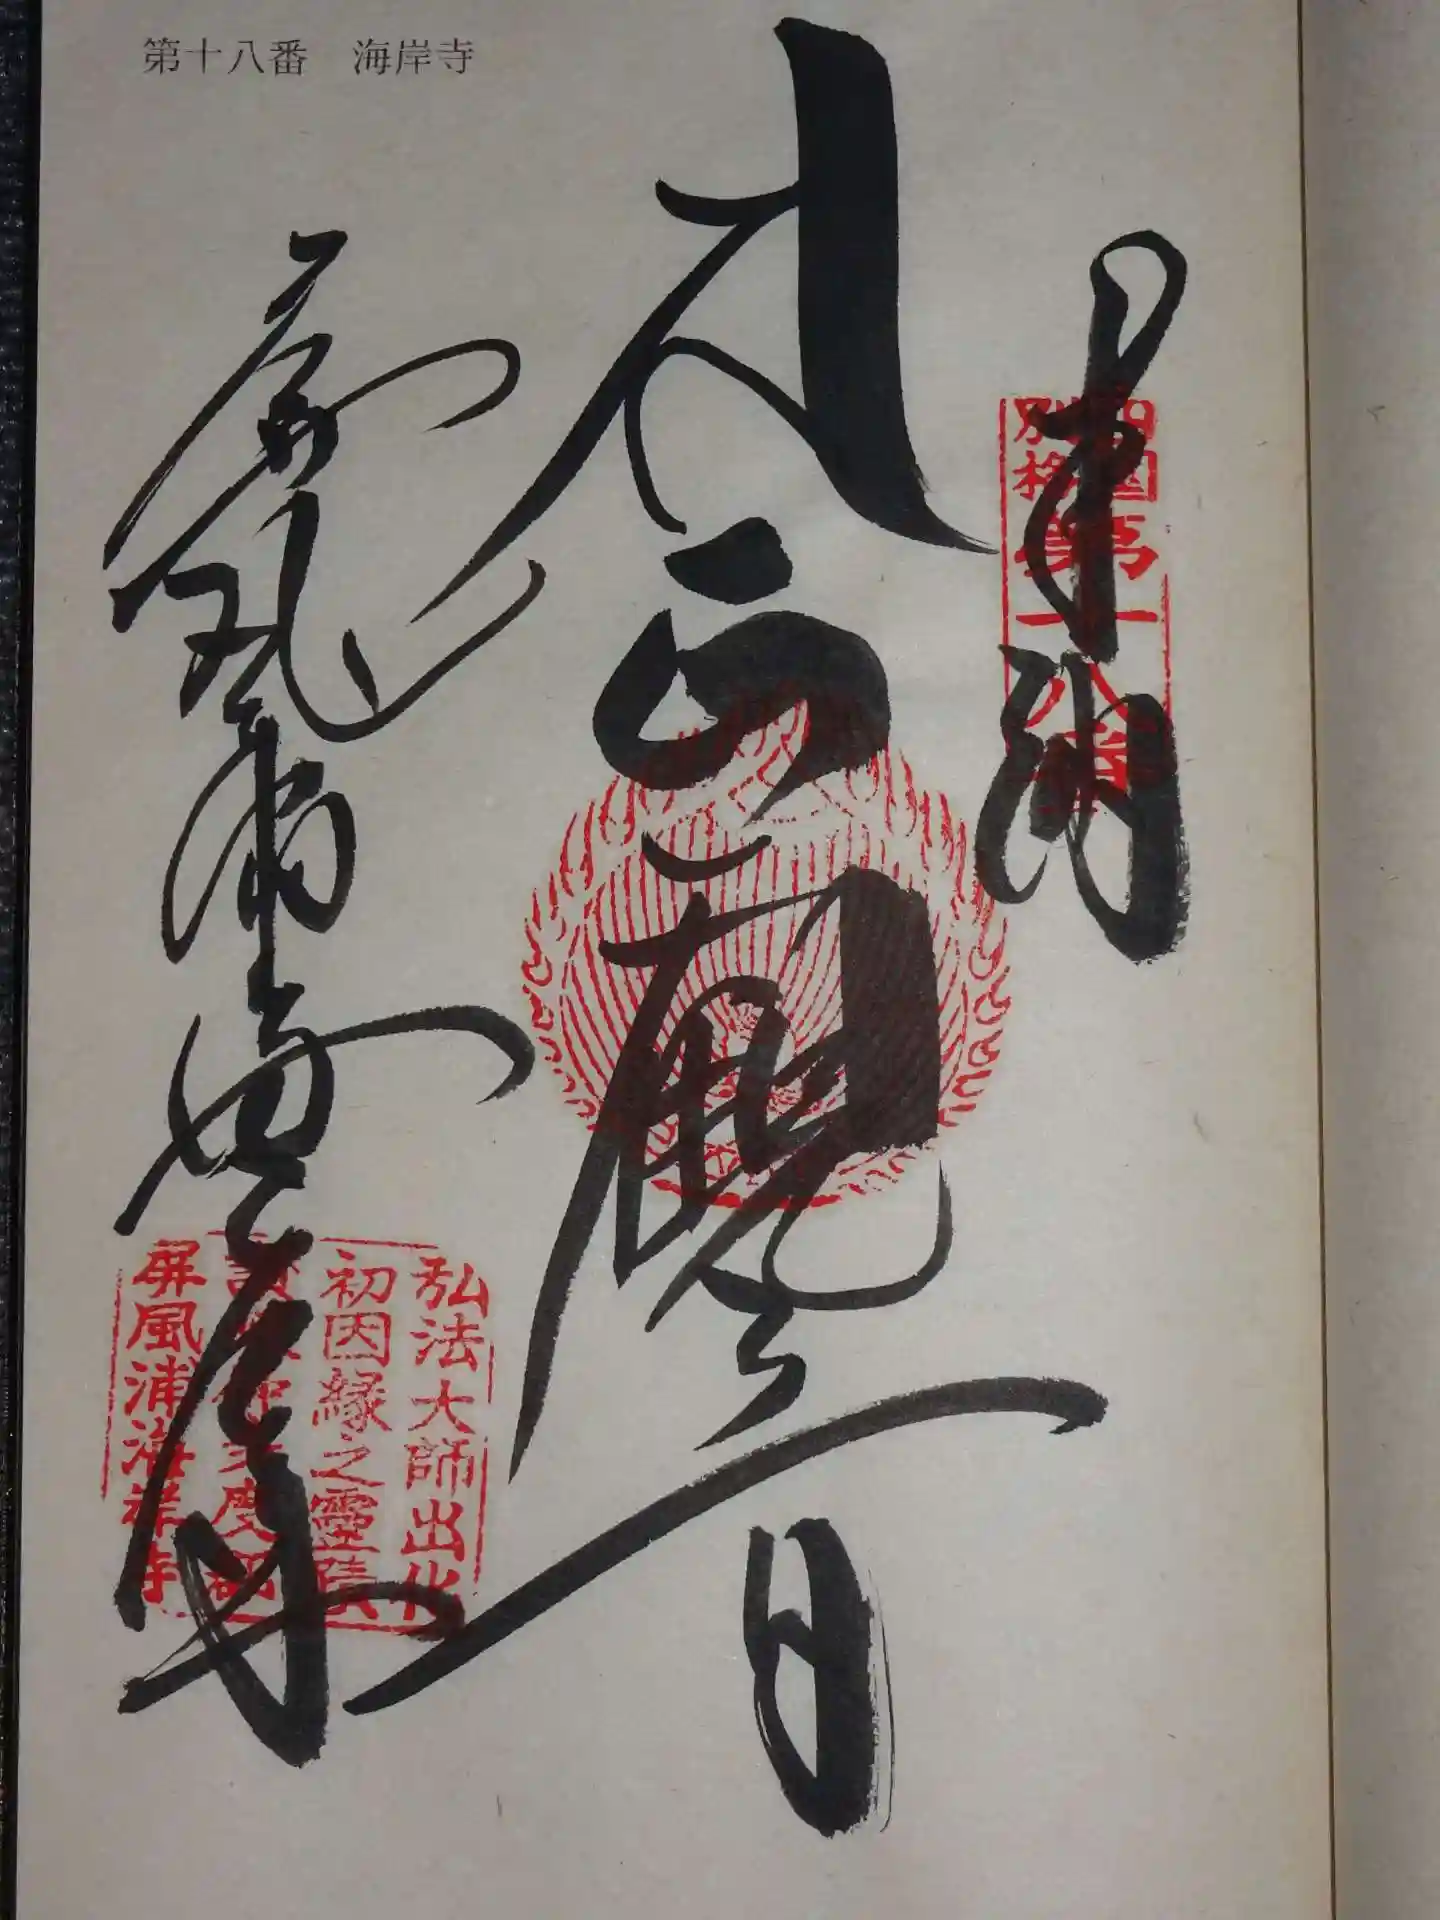 第十八番　海岸寺
奉納
四国
別格
第一八番
正観音
屏風浦海岸寺
弘法大師出化
初因縁之靈蹟
屏風浦海岸寺